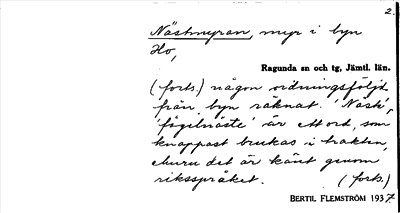 2.
Nästmyran, myr i byn
Ho,
Ragunda sn och tg, Jämtl. län.
(forts.) någon ordningsföljd
från byn räknat. 'Näst',
'fågelnäste' är ett ord, som
knappast brukas i trakten,
ehuru det är känt genom
riksspråket. (forts.)
BERTIL FLEMSTRÖM 1937